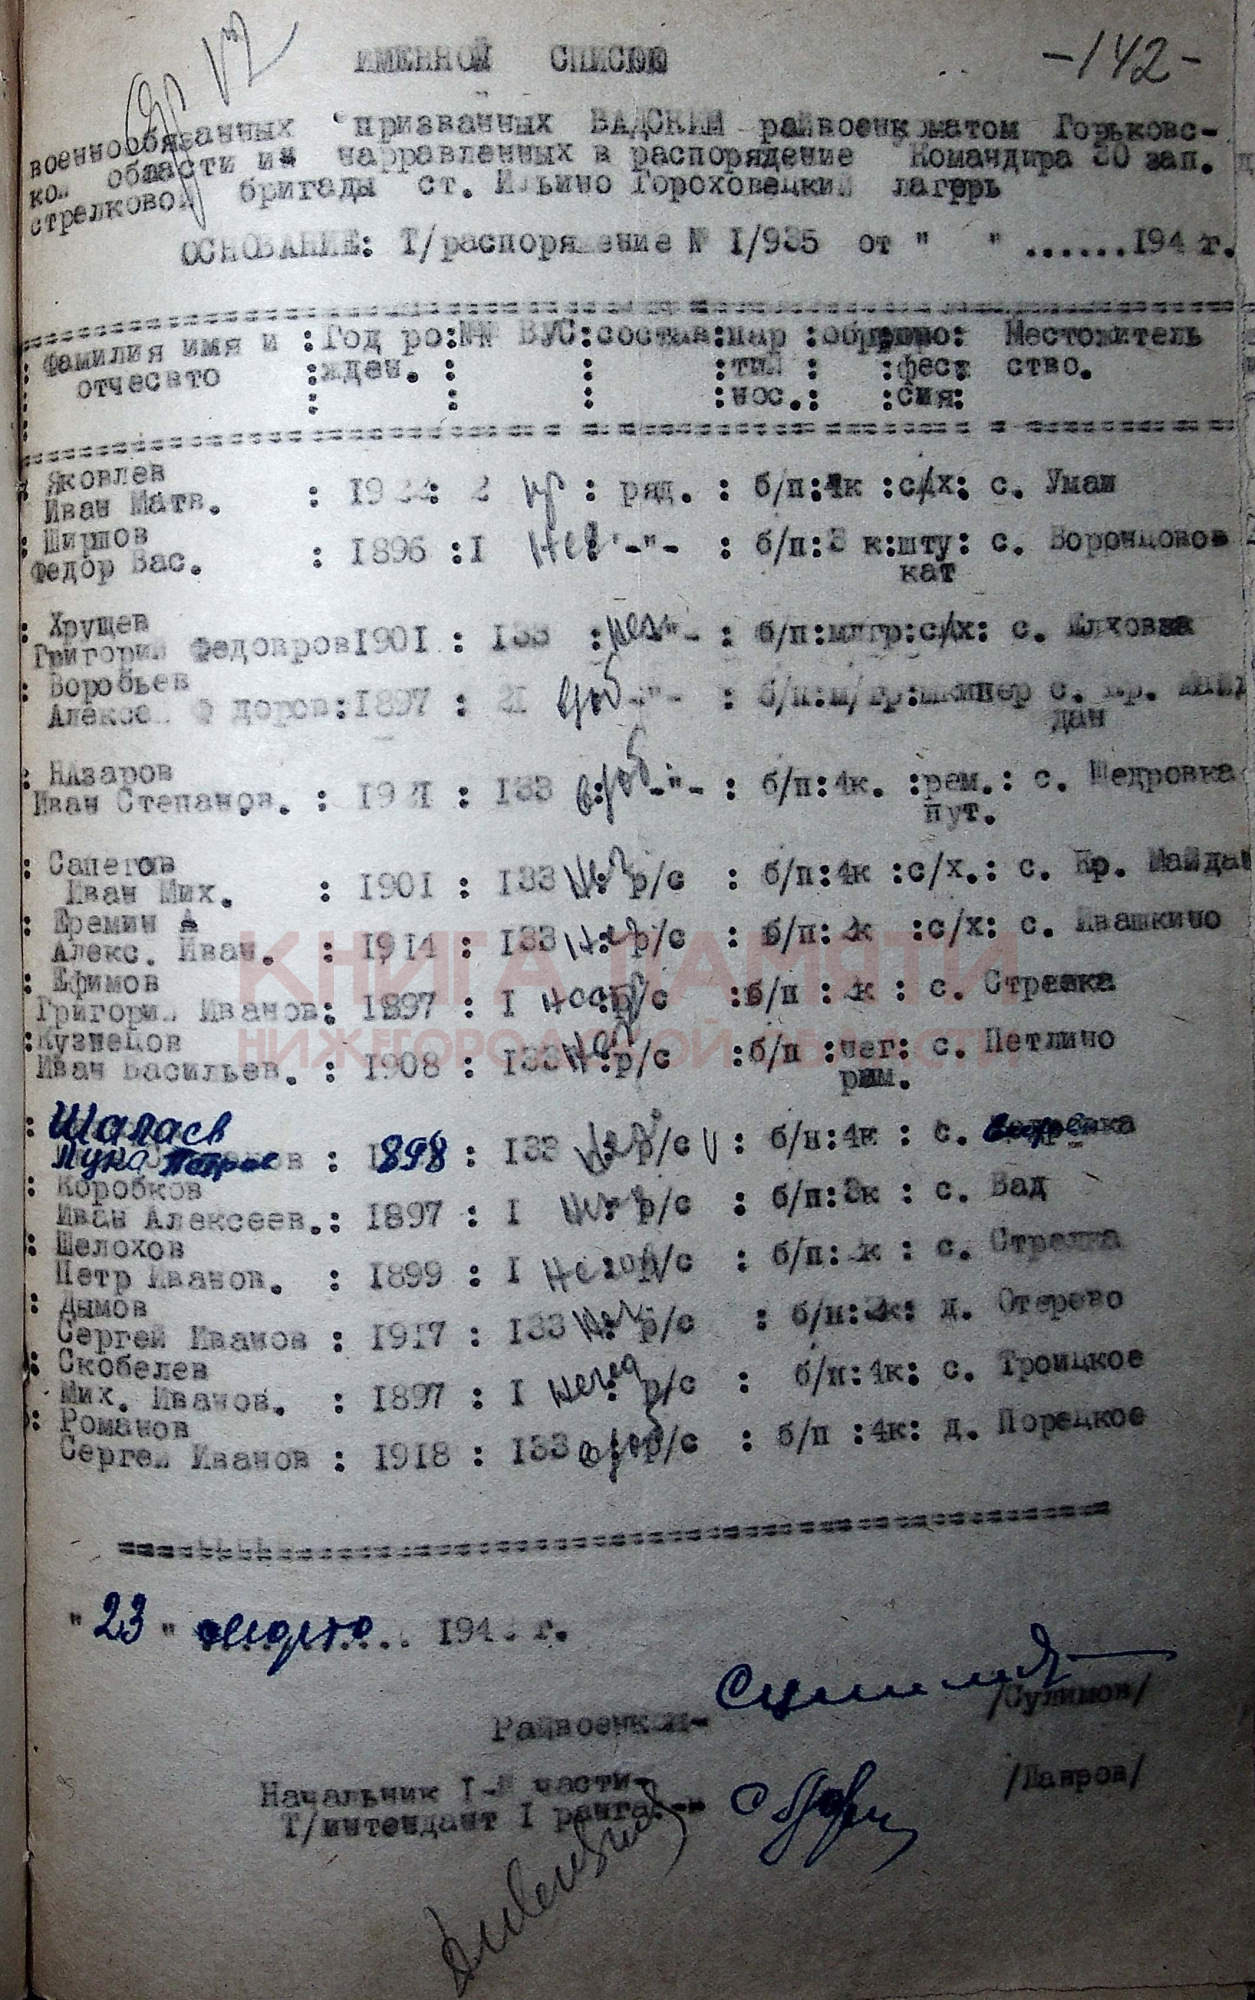 -142-
ИМЕННОЙ СПИСОК
военнообязанных призванных ВАДСКИМ райвоенкоматом Горьковс-
кой области и направленных в распоряжение Командира 30 зап.
стрелковой бригады ст. Ильино Гороховецкий лагерь
ОСНОВАНИЕ: Т/распоряжение № I/935 от " " ......194 г.
Фамилия имя и :Год ро:№№ ВУС:состав:пар :обр :про: Местожитель
отчесвто :жден. : : :тий : :фесс ство.
: : : :нос.: :сия:
: Яковлев
Иван Матв. : : 2 : ряд. : б/п:4к :с/х: с. Умай
: Ширшов
Федор Вас. : 1896 :I Нег -"- : б/п:3 к:шту: с. Воронцовов
кат
: Хрущев
Григорий Федовров1901 : I33 : -"- : б/п:мlгр:с/х: с. Елховка
: Воробьев
Алексей Ф доров:1897 : 21 -"- : б/п:м/гр:шкипер с. Кр. Май
дан
: НАзаров
Иван Степанов. : : I33 : -"- : б/п:4к. :рем.: с. Шедровка
пут.
: Сапегов
Иван Мих. : 1901 : I33 Нег р/с : б/п:4к :с/х.: с. Кр. Майдан
: Еремин А
Алекс. Иван. : 1914 : I33 Нег р/с : б/п: к :с/х: с. Ивашкино
: Ефимов
Григорий Иванов: 1897 : I р/с :б/п : к : с. Стрелка
:Кузнецов
Иван Васильев. : 1908 : I33 Нег :р/с :б/п :нег: с. Петлино
рам.
: Шалаев
Лука Петров : 1898 : I33 Нег р/с V : б/п:4к : с.
: Коробков
Иван Алексеев.: 1897 : I Нег р/с : б/п:3к : с. Вад
: Шелохов
Петр Иванов. : 1899 : I р/с : б/п: к : с. Стрелка
: Дымов
Сергей Иванов : 1917 : I33 Нег р/с : б/п:3к: д. Отерево
: Скобелев
Мих. Иванов. : 1897 : I Негод р/с : б/п:4к: с. Троицкое
: Романов
Сергей Иванов : 1918 : I33 р/с : б/п :4к: д. Порецкое
"23" марта 194 . г.
Райвоенком- /Сулимов/
Начальник I-й части-
Т/интендант I ранга.- /Лавров/
КНИГА ПАМЯТИ
НИЖЕГОРОДСКОЙ ОБЛАСТИ